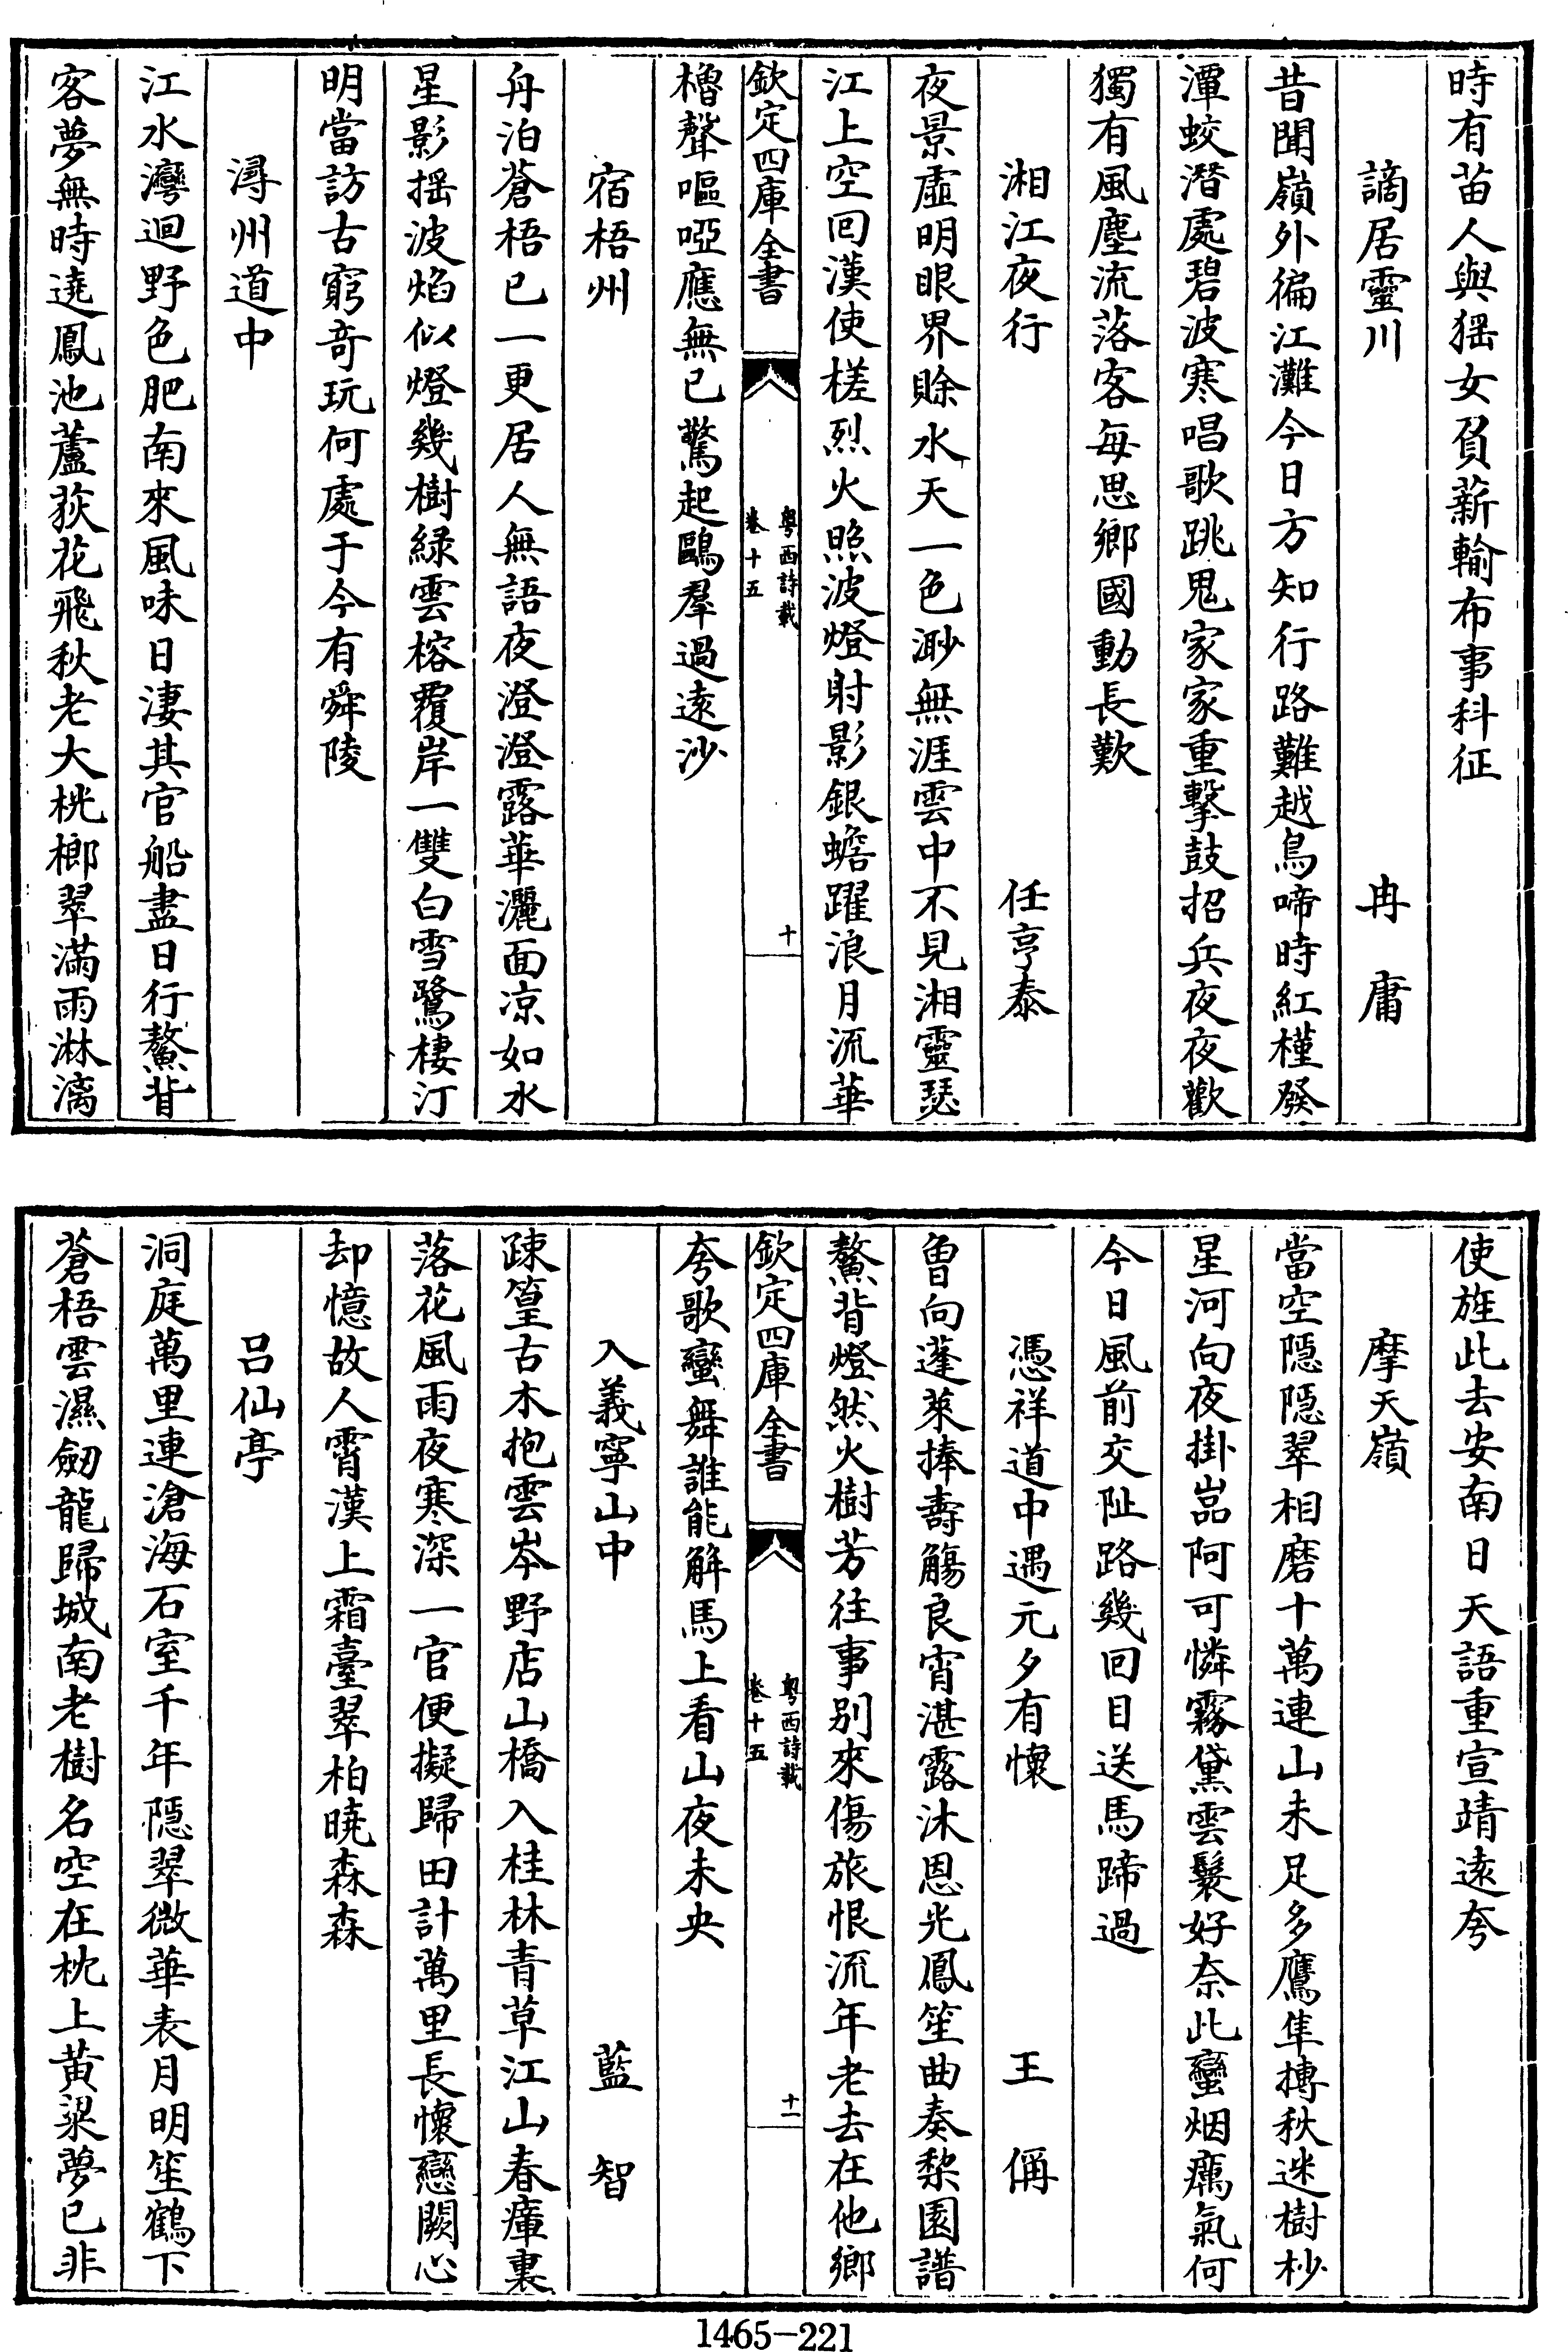 時有苗人與猺女負薪輸布事科征
謫居靈川　冉庸
昔聞嶺外徧江灘今日方知行路難越鳥啼時紅槿發
潭蛟潛處碧波寒唱歌跳鬼家家重擊鼓招兵夜夜歡
獨有風塵流落客每思鄉國動長歎
湘江夜行　任亨泰
夜景虛明眼界賒水天一色渺無涯雲中不見湘靈瑟
江上空回漢使槎烈火照波燈射影銀蟾躍浪月流華
欽定四庫全書　粵西詩載卷十五　十
櫓聲嘔啞應無已驚起鷗羣過遠沙
宿梧州
舟泊蒼梧已一更居人無語夜澄澄露華灑面凉如水
星影揺波焰似燈幾樹緑雲榕覆岸一雙白雪鷺棲汀
明當訪古窮奇玩何處于今有舜陵
潯州道中
江水灣迴野色肥南來風味日淒其官船盡日行鰲背
客夢無時遶鳳池蘆荻花飛秋老大桄榔翠滿雨淋漓
使旌此去安南日天語重宣靖遠夸
摩天嶺
當空隱隱翠相磨十萬連山未足多鷹隼摶秋迷樹杪
星河向夜掛嵓阿可憐霧黛雲鬟好奈此蠻烟癘氣何
今日風前交阯路幾回目送馬蹄過
憑祥道中遇元夕有懷　王偁
曾向蓬萊捧壽觴良宵湛露沐恩光鳳笙曲奏棃園譜
鰲背燈然火樹芳往事别來傷旅恨流年老去在他鄉
欽定四庫全書　粵西詩載卷十五　十一
夸歌蠻舞誰能解馬上看山夜未央
入義寧山中　藍智
疎篁古木抱雲岑野店山橋入桂林青草江山春瘴裏
落花風雨夜寒深一官便擬歸田計萬里長懷戀闕心
却憶故人霄漢上霜臺翠柏曉森森
呂仙亭
洞庭萬里連滄海石室千年隱翠微華表月明笙鶴下
蒼梧雲濕劒龍歸城南老樹名空在枕上黄粱夢已非
1465-221